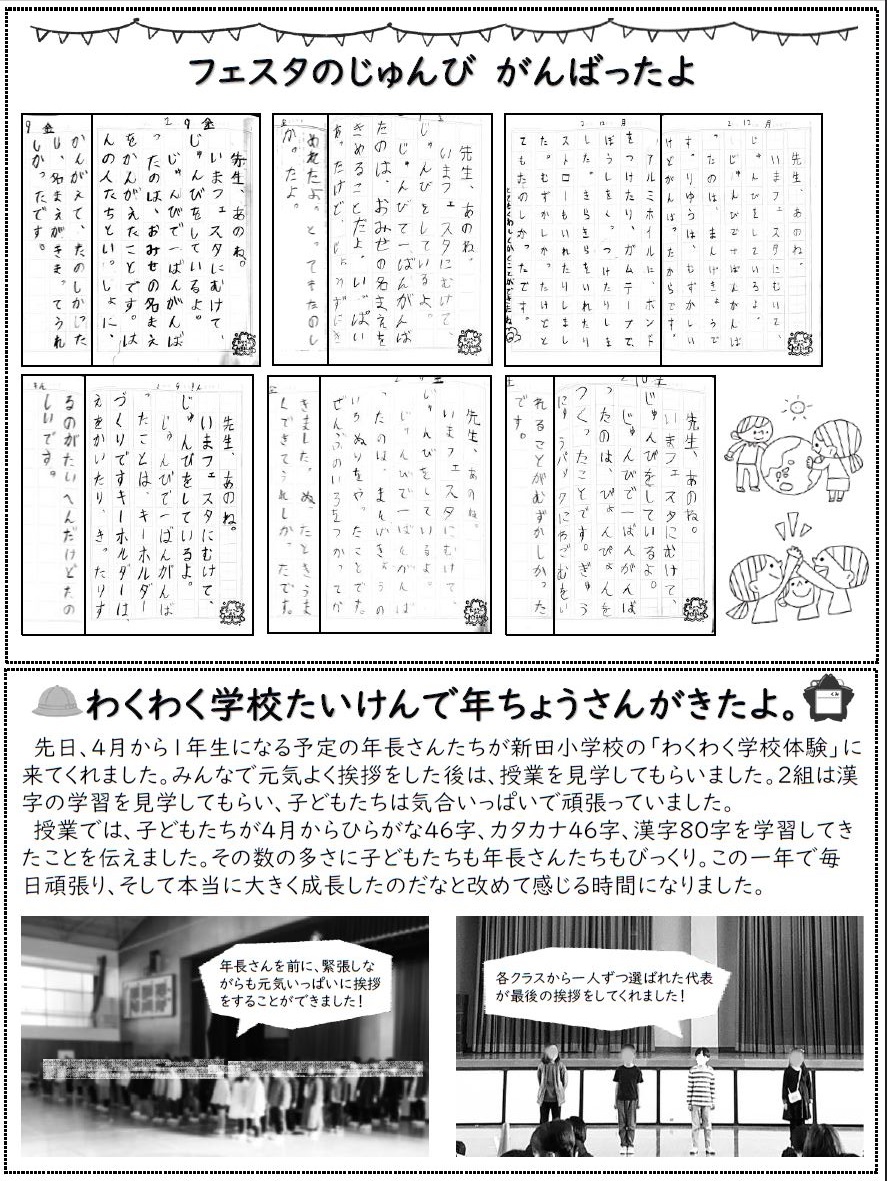 フェスタのじゅんび がんばったよ
2 12 月
先生、あのね。
いまフェスタにむけて、
じゅんびをしているよ。
じゅんびで一ばんがんば
ったのは、まんげきょうで
す。りゆうは、むずかしい
けどがんばったからです。
アルミホイルに、ボンド
をつけたり、ガムテープで、
ぼうしをくっつけたりしま
した。きらきらをいれたり
ストローもいれたりしまし
た。むずかしかったけどと
てもたのしかったです。
先生、あのね。
いまフェスタにむけて、
じゅんびをしているよ。
じゅんびで一ばんがんば
たのは、おみせの名まえを
きめることだよ。いっぱい
あったけど、
かったよ。
2 9 金
先生、あのね。
いまフェスタにむけて、
じゅんびをしているよ。
じゅんびで一ばんがんば
ったのは、おみせの名まえ
をかんがえたことです。は
んの人たちといっしょに、
9 金
かんがえて、たのしかった
し、名まえがきまってうれ
しかったです。
先生、あのね。
いまフェスタにむけて、
じゅんびをしているよ。
じゅんびで一ばんがんば
ったのは、ぴょんぴょんを
つくったことです。ぎゅう
にゅうパックにわごむをい
れることがむずかしかった
です。
先生、あのね。
いまフェスタにむけて、
じゅんびをしているよ。
じゅんびで一ばんがんば
ったのは、まんげきょうの
いろぬりをやったことです。
ぜんぶのいろをつかってか
きました。ぬったときうま
くできてうれしかったです。
先生、あのね。
いまフェスタにむけて、
じゅんびをしているよ。
じゅんびで一ばんがんば
ったことは、キーホルダー
づくりですキーホルダーは、
えをかいたり、きったりす
るのがたいへんだけどたの
しいです。
わくわく学校たいけんで年ちょうさんがきたよ。
先日、4月から1年生になる予定の年長さんたちが新田小学校の「わくわく学校体験」に
来てくれました。みんなで元気よく挨拶をした後は、授業を見学してもらいました。2組は漢
字の学習を見学してもらい、子どもたちは気合いっぱいで頑張っていました。
授業では、子どもたちが4月からひらがな46字、カタカナ46字、漢字80字を学習してき
たことを伝えました。その数の多さに子どもたちも年長さんたちもびっくり。この一年で毎
日頑張り、そして本当に大きく成長したのだなと改めて感じる時間になりました。
年長さんを前に、緊張しな
がらも元気いっぱいに挨拶
をすることができました!
各クラスから一人ずつ選ばれた代表
が最後の挨拶をしてくれました!